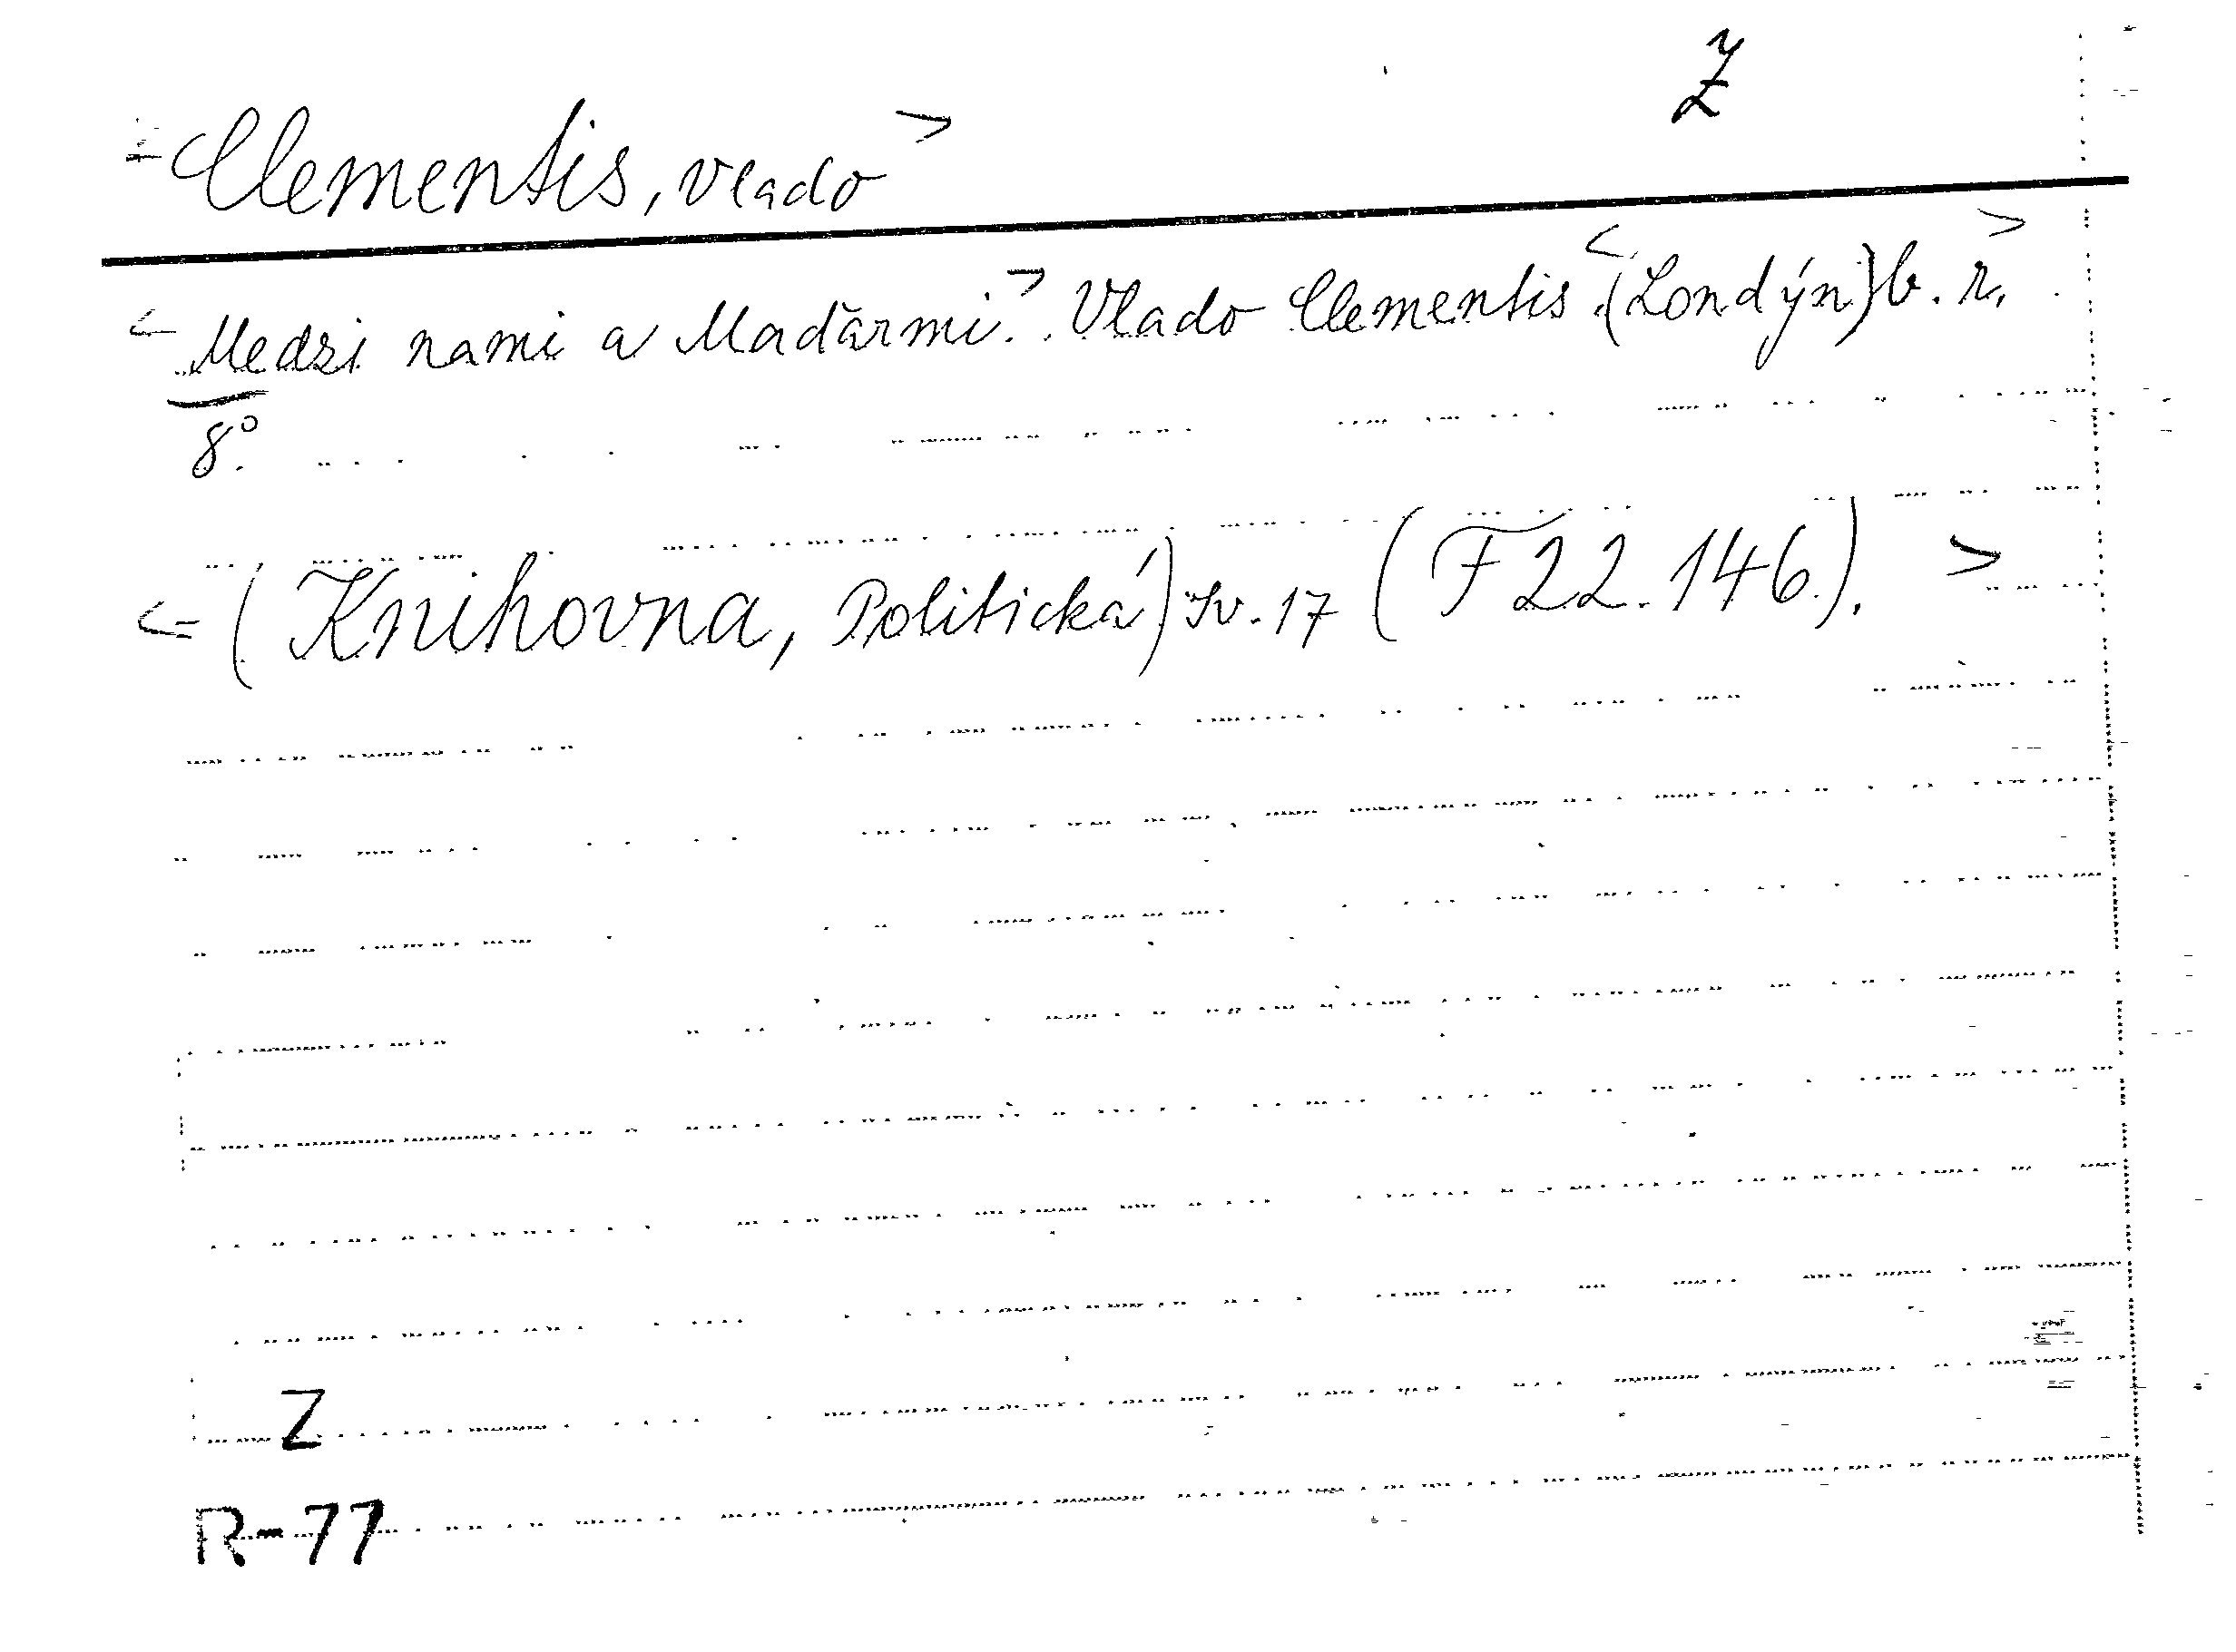 Z
<Clementis, Vlado>
<Medzi nami a Maďarmi.> Vlado Clementis. <(Londýn) b. r.>
8°.
<(Knihovna, Politická) Sv. 17 (F 22.146.).>
Z
R-77